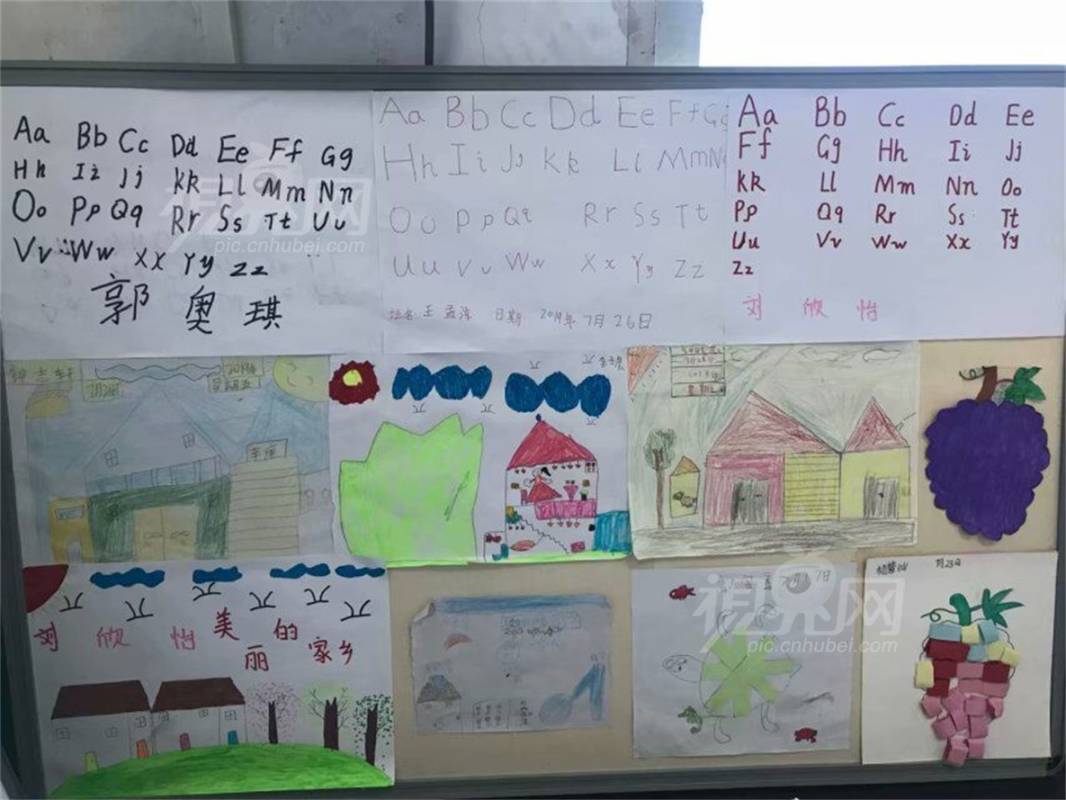 Aa Bb Cc Dd Ee Ff Gg
Hh Ii Jj Kk Ll Mm Nn
Oo Pp Qq Rr Ss Tt Uu
Vv Ww Xx Yy Zz
郭奥琪
Aa Bb Cc Dd Ee Ff Gg
Hh Ii Jj Kk Ll Mm Nn
Oo Pp Qq Rr Ss Tt
Uu Vv Ww Xx Yy Zz
姓名 王 日期 2019年7月26日
Aa Bb Cc Dd Ee
Ff Gg Hh Ii Jj
Kk Ll Mm Nn Oo
Pp Qq Rr Ss Tt
Uu Vv Ww Xx Yy
Zz
刘欣怡
刘欣怡 美丽的家乡
视界网
pic.cnhubei.com
视界网
pic.cnhubei.com